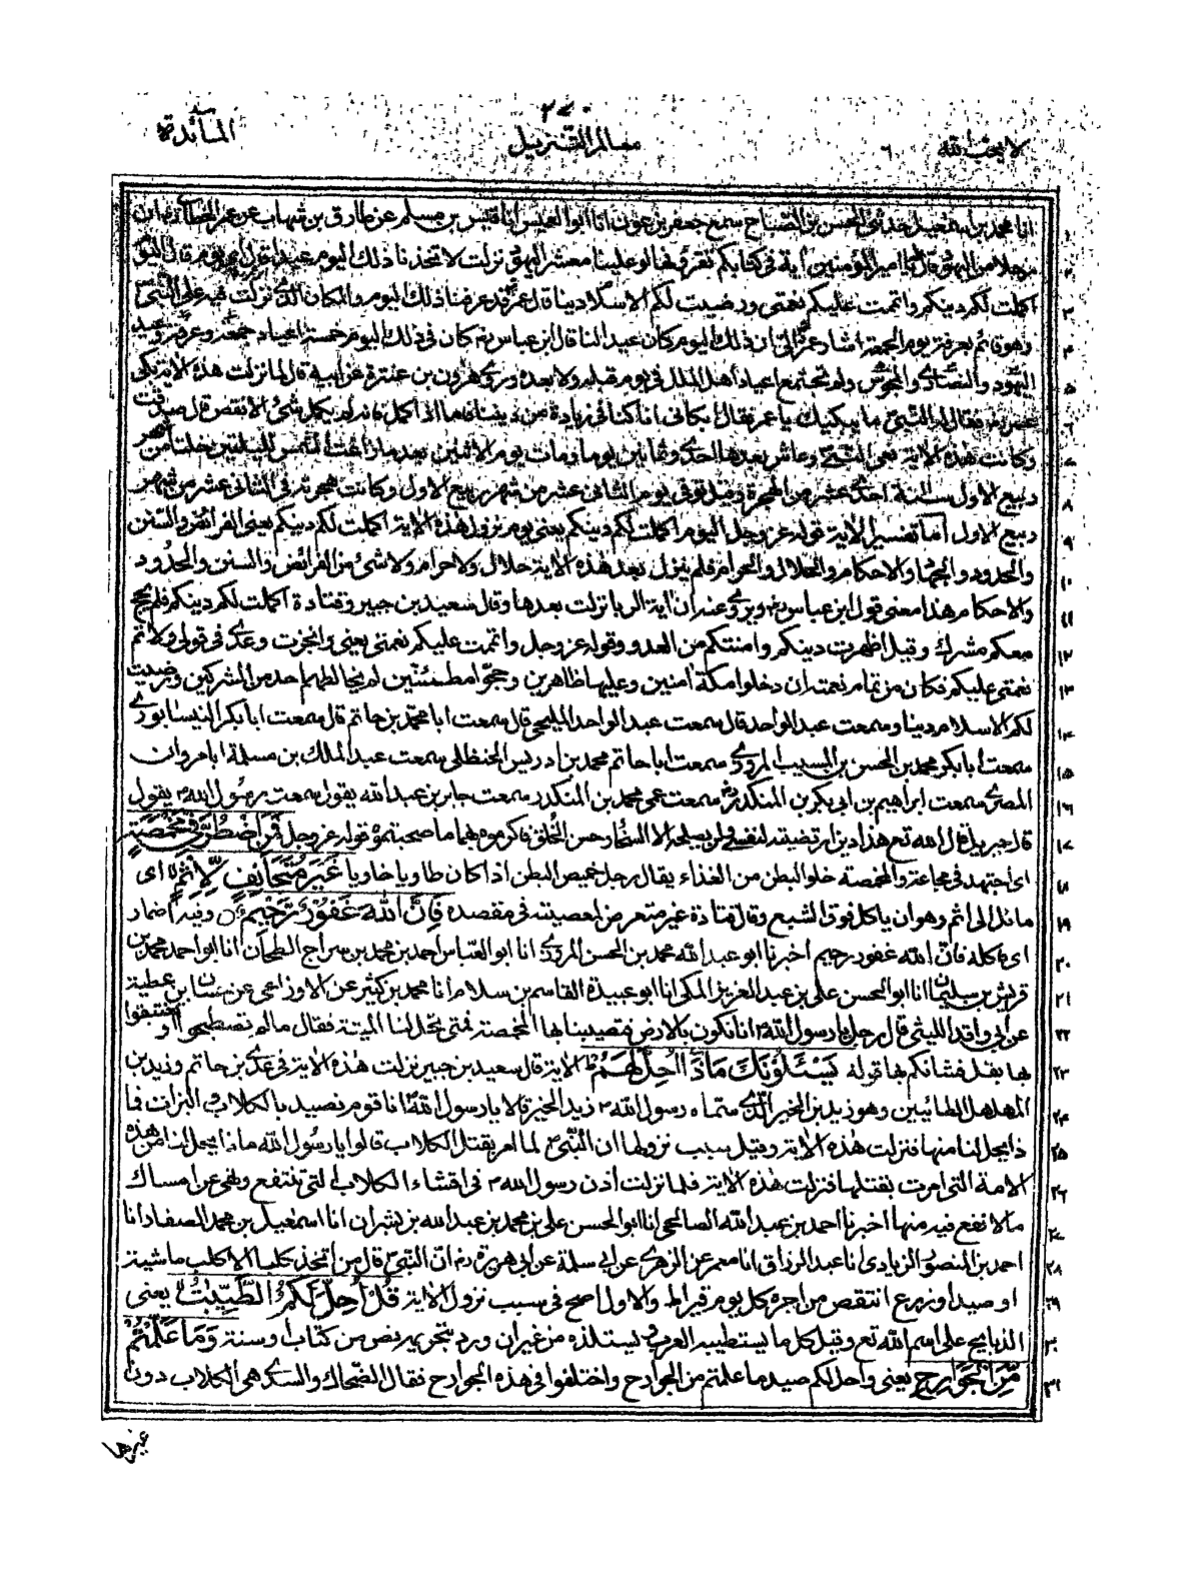 ٢٧٠
لا يحب الله ٦
معالم التنزيل
المائدة
انا محمد بن اسمعيل حدثنى الحسن بن الصباح سمع جعفر بن عون انا ابو العميس انا قيس بن مسلم عن طارق بن شهاب عن عمر بن الخطاب ان
رجلا من اليهود قال له يا امير المؤمنين اية فى كتابكم تقرؤنها لو علينا معشر اليهود نزلت لا تخذنا ذلك اليوم عيدا قال اى اية قال اليوم
اكملت لكم دينكم واتممت عليكم نعمتى ورضيت لكم الاسلام دينا قال عمر قد عرفنا ذلك اليوم والمكان الذى نزلت فيه على النبى
وهو قائم بعرفة يوم الجمعة اشار عمر الى ان ذلك اليوم كان عيد النا قال ابن عباس كان فى ذلك اليوم خمسة اعياد جمعة وعرفة وعيد
اليهود والنصارى والمجوس ولم تجتمع اعياد اهل الملل فى يوم قبله ولا بعده وروى هرون بن عنترة عن ابيه قال لما نزلت هذه الاية بكى
عمر فقال له النبى ما يبكيك يا عمر فقال ابكانى انا كنا فى زيادة من ديننا فاما اذا كمل فانه لم يكمل شئ الا نقص قال صدقت
وكانت هذه الاية نعى النبى وعاش بعدها احدى وثمانين يوما ومات يوم الاثنين بعد ما زاغت الشمس لليلتين خلتا من شهر
ربيع الاول سنة احدى عشر من الهجرة وقيل توفى يوم الثانى عشر من شهر ربيع الاول وكانت هجرته فى الثانى عشر من شهر
ربيع الاول اما تفسير الاية قوله عز وجل اليوم اكملت لكم دينكم يعنى يوم نزول هذه الاية اكملت لكم دينكم يعنى الفرائض والسنن
والحدود والجهاد والاحكام والحلال والحرام فلم ينزل بعد هذه الاية حلال ولا حرام ولا شئ من الفرائض والسنن والحدود
والاحكام هذا معنى قول ابن عباس ويروى عنه ان اية الربا نزلت بعدها وقال سعيد بن جبير وقتادة اكملت لكم دينكم فلم يحج
معكم مشرك وقيل اظهرت دينكم وامنتكم من العدو وقوله عز وجل واتممت عليكم نعمتى يعنى وانجزت وعدى فى قولى ولاتم
نعمتى عليكم فكان من تمام نعمته ان دخلوا مكة امنين وعليها ظاهرين وحجوا مطمئنين لم يخالطهم احد من المشركين ورضيت
لكم الاسلام دينا وسمعت عبد الواحد قال سمعت عبد الواحد المليحى قال سمعت ابا محمد بن حاتم قال سمعت ابا بكر النيسابورى
سمعت ابا بكر محمد بن الحسن بن المسيب المروزى سمعت ابا حاتم محمد بن ادريس الحنظلى سمعت عبد الملك بن مسلمة ابا مروان
المصرى سمعت ابراهيم بن ابى بكر بن المنكدر سمعت عمى محمد بن المنكدر سمعت جابر بن عبد الله يقول سمعت رسول الله يقول
قال جبريل قال الله تع هذا دين ارتضيته لنفسى ولن يصلحه الا السخاء وحسن الخلق فاكرموه بهما ما صحبتموه قوله عز وجل فَمَنِ اضْطُرَّ فِي مَخْمَصَةٍ
اى اجتهد فى مجاعة والمخمصة خلو البطن من الغذاء يقال رجل خميص البطن اذا كان طاويا خاويا غَيْرَ مُتَجَانِفٍ لِّإِثْمٍ اى
مائل الى اثم وهو ان ياكل فوق الشبع وقال قتادة غير متعرض لمعصيته فى مقصده فَإِنَّ اللَّهَ غَفُورٌ رَّحِيمٌ وفيه اضمار
اى فاكله فان الله غفور رحيم اخبرنا ابو عبد الله محمد بن الحسن المروزى انا ابو العباس احمد بن محمد بن سراج الطحان انا ابو احمد محمد بن
قريش بن سليمان انا ابو الحسن على بن عبد العزيز المكى انا ابو عبيدة القاسم بن سلام انا محمد بن كثير عن الاوزاعى عن حسان بن عطية
عن ابى واقد الليثى قال رجل يا رسول الله انا نكون بالارض فتصيبنا بها المخمصة فمتى تحل لنا الميتة فقال ما لم تصطبحوا او تغتبقوا
بها بقلا فشانكم بها قوله يَسْئَلُونَكَ مَاذَا أُحِلَّ لَهُمْ الاية قال سعيد بن جبير نزلت هذه الاية فى عدى بن حاتم وزيد بن
المهلهل الطائيين وهو زيد بن الخير الذى سماه رسول الله زيد الخير قالا يا رسول الله انا قوم نصيد بالكلاب والبزات فما
ذا يحل لنا منها فنزلت هذه الاية وقيل سبب نزولها ان النبى لما امر بقتل الكلاب قالوا يا رسول الله ماذا يحل لنا من هذه
الامة التى امرت بقتلها فنزلت هذه الاية فلما نزلت اذن رسول الله فى اقتناء الكلاب التى تنتفع ونهى عن امساك
ما لا نفع فيه منها اخبرنا احمد بن عبد الله الصالحى انا ابو الحسن على بن محمد بن عبد الله بن بشران انا اسمعيل بن محمد الصفار انا
احمد بن المنصور الزيادى انا عبد الرزاق انا معمر عن الزهرى عن ابى سلمة عن ابى هريرة ان النبى قال من اتخذ كلبا الا كلب ماشية
او صيد او زرع انتقص من اجره كل يوم قيراط والاول اصح فى سبب نزول الاية قُلْ أُحِلَّ لَكُمُ الطَّيِّبٰتُ يعنى
الذبايح على اسم الله تع وقيل كل ما يستطيبه العرب ويستلذه من غير ان ورد بتحريمه نص من كتاب او سنة وَمَا عَلَّمْتُمْ
مِّنَ الْجَوَارِحِ يعنى واحل لكم صيد ما علمتم من الجوارح واختلفوا فى هذه الجوارح فقال الضحاك والسدى هى الكلاب دون
غيرها